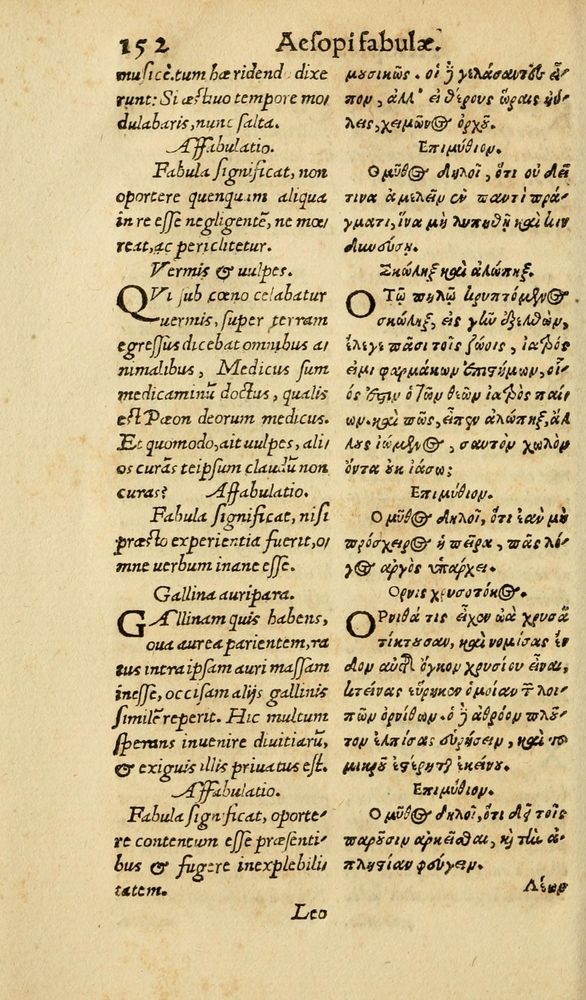 152 Aesopi fabulæ.
musicè. tum hæ ridendo dixe
runt: Si æstiuo tempore mo/
dulabaris, nunc salta.
Affabulatio.
Fabula significat, non
oportere quenquam aliqua
in re esse negligentē, ne mœ
reat, ac periclitetur.
Vermis & uulpes.
QVi sub cœno celabatur
uermis, super terram
egressus dicebat omnibus a/
nimalibus, Medicus sum
medicaminū doctus, qualis
est Pæon deorum medicus.
Et quomodo, ait uulpes, ali/
os curās teipsum claudū non
curas? Affabulatio.
Fabula significat, nisi
præsto experientia fuerit, o/
mne uerbum inane esse.
Gallina auripara.
GAllinam quis habens,
oua aurea parientem, ra
tus intra ipsam auri massam
inesse, occisam alijs gallinis
similē reperit. Hic multum
sperans inuenire diuitiarū,
& exiguis illis priuatus est.
Affabulatio.
Fabula significat, oporte/
re contentum esse præsenti/
bus & fugere inexplebili
tatem.
Leo
μυσικῶς. οἱ ἢ γελάσαντες εἶ/
πον, ἀλλ' εἰ θέρους ὥραις ηὔ/
λεις, χειμῶνος ὀρχοῦ.
Ἐπιμύθιον.
Ο μῦθος δηλοῖ, ὅτι οὐ δεῖ
τινα ἀμελεῖν ἐν παντὶ πρά/
γματι, ἵνα μὴ λυπηθῇ καὶ κιν
δυνεύσῃ.
Σκώληξ καὶ ἀλώπηξ.
Ο Τῷ πηλῷ κρυπτόμενος
σκώληξ, εἰς γῆν ἐξελθὼν,
ἔλεγε πᾶσι τοῖς ζώοις, ἰατρός
εἰμι φαρμάκων ἐπιστήμων, οἷ/
ός ἐστιν ὁ τῶν θεῶν ἰατρὸς παιή
ων. καὶ πῶς, ἔπεν ἀλώπηξ, ἄλ
λους ἰώμενος, σαυτὸν χωλὸν
ὄντα οὐκ ἰάσω;
Ἐπιμύθιον.
Ο μῦθος δηλοῖ, ὅτι ἐὰν μὴ
πρόσχειρος ἡ πεῖρα, πᾶς λό/
γος ἀργὸς ὑπάρχει.
Ορνις χρυσοτόκος.
ΟΡνιθά τις εἶχεν ὠὰ χρυσᾶ
τίκτουσαν, καὶ νομίσας ἔν
δον αὐτῆς ὄγκον χρυσίου εἶναι,
κτείνας εὕρηκεν ὁμοίαν τῶν λοι/
πῶν ὀρνίθων. ὁ ἢ ἀθρόον πλοῦ/
τον ἐλπίσας εὑρήσειν, καὶ τοῦ
μικροῦ ἐστέρηται ἐκείνου.
Ἐπιμύθιον.
Ο μῦθος δηλοῖ, ὅτι δεῖ τοῖς
παροῦσιν ἀρκεῖσθαι, καὶ τὴν ἀ/
πληστίαν φεύγειν.
Λέων